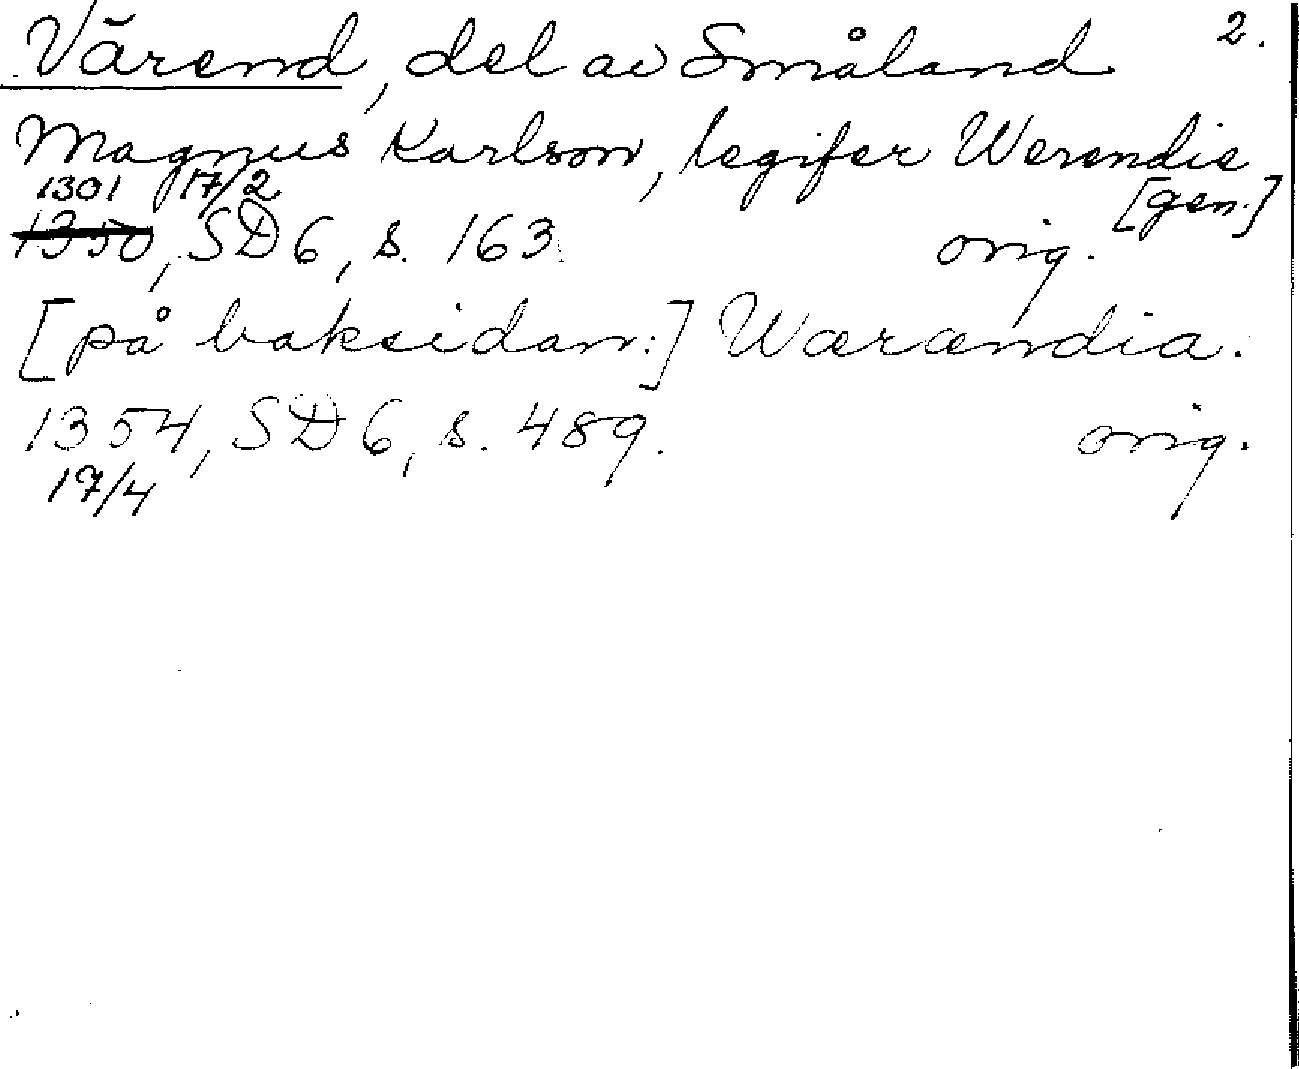 Värend, del av Småland 2.
Magnus Karlson, legifer Werendie
1301 17/2 [gen.]
1350, SD 6, s. 163. orig.
[på baksidan:] Wærændia.
1354, SD 6, s. 489. orig.
17/4